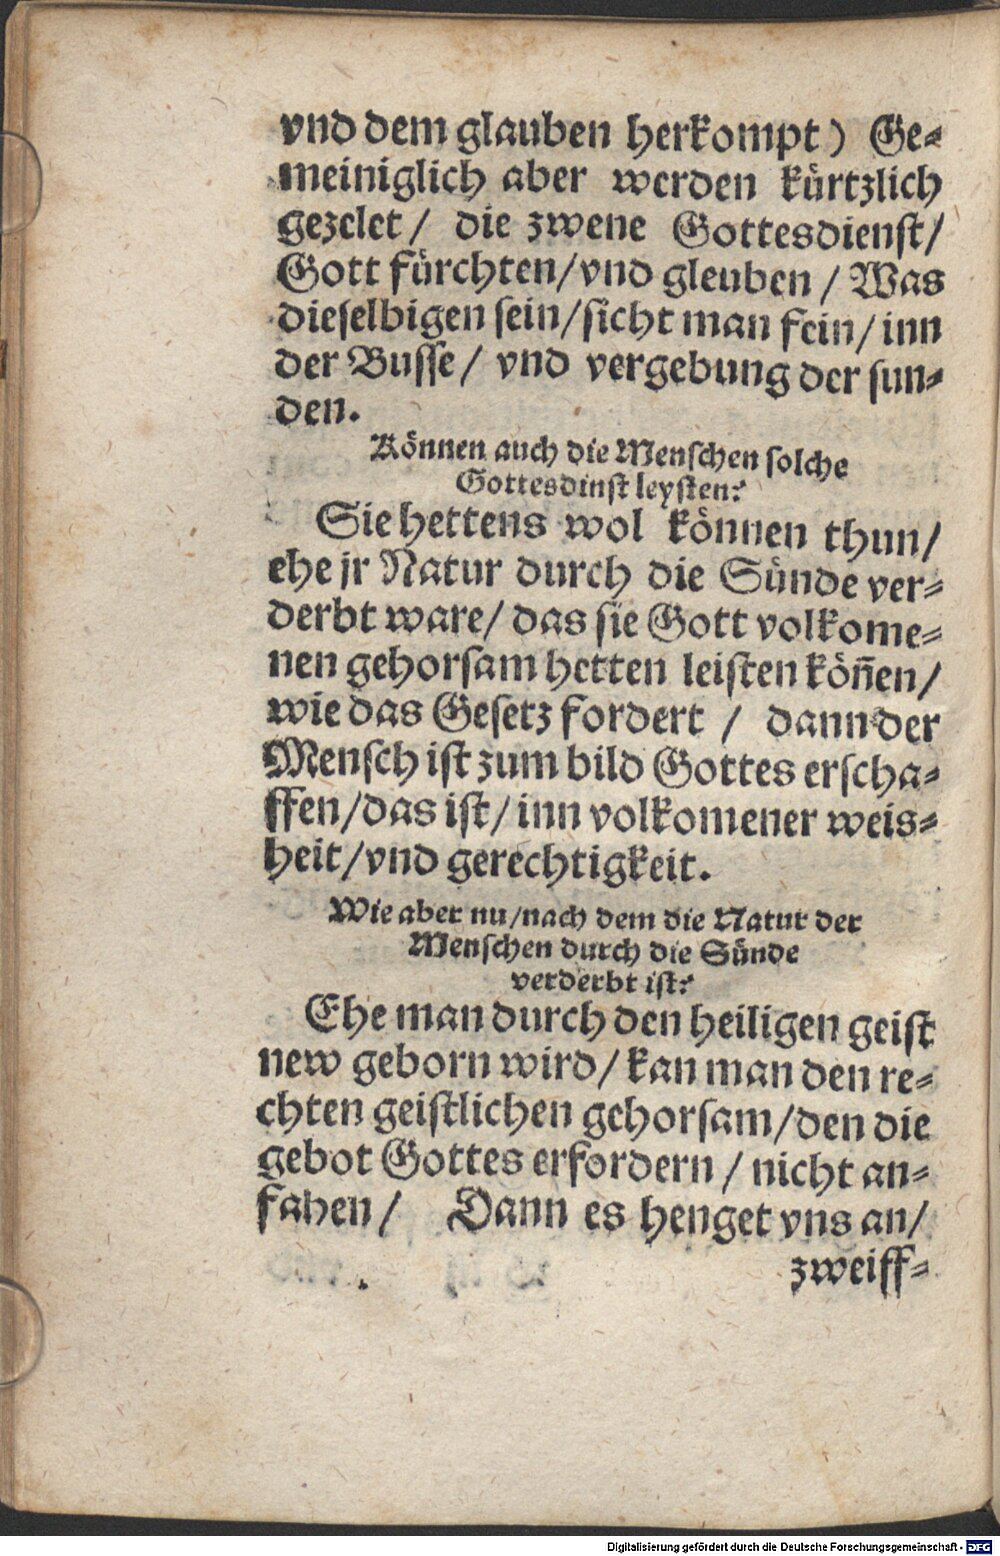 vnd dem glauben herkompt) Ge⸗
meiniglich aber werden kürtzlich
gezelet / die zwene Gottesdienst/
Gott fürchten/vnd gleuben / Was
dieselbigen sein/sicht man fein/inn
der Busse/ vnd vergebung der sun⸗
den.
Können auch die Menschen solche
Gottesdinst leysten?
Sie hettens wol können thun/
ehe jr Natur durch die Sünde ver⸗
derbt ware/ das sie Gott volkome⸗
nen gehorsam hetten leisten köñen/
wie das Gesetz fordert / dann der
Mensch ist zum bild Gottes erscha⸗
ffen/das ist/inn volkomener weis⸗
heit/vnd gerechtigkeit.
Wie aber nu/nach dem die Natur der
Menschen durch die Sünde
verderbt ist?
Ehe man durch den heiligen geist
new geborn wird/ kan man den re⸗
chten geistlichen gehorsam/den die
gebot Gottes erfordern / nicht an⸗
fahen / Dann es henget vns an/
zweiff⸗
Digitalisierung gefördert durch die Deutsche Forschungsgemeinschaft - DFG